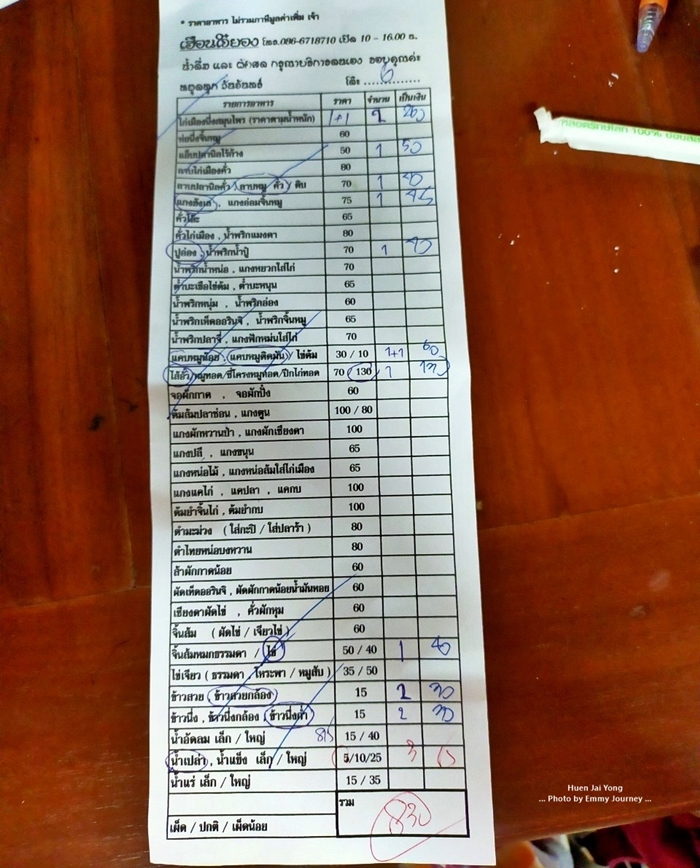 * ราคาอาหาร ไม่รวมภาษีมูลค่าเพิ่ม เจ้า
เฮือนใจ๋ยอง โทร.086-6718710 เปิด 10 - 16.00 น.
น้ำดื่ม และ ผักสด กรุณาบริการตนเอง ขอบคุณค่ะ
หยุดทุก วันจันทร์ โต๊ะ .............. 6
รายการอาหาร ราคา จำนวน เป็นเงิน
ไก่เมืองนึ่งสมุนไพร (ราคาตามน้ำหนัก) 1+1 2 260
ท่อนึ่งจิ้นหมู 60
แอ็บปลานิลไร้ก้าง 50 1 50
ไก่เมืองคั่ว 80
ลาบปลานิลคั่ว / ลาบหมู ( คั่ว ) / ดิบ 70 1 70
แกงฮังเล , แกงอ่อมจิ้นหมู 75 1 75
คั่วโฮ๊ะ 65
คั่วไก่เมือง , น้ำพริกแมงดา 80
ปูอ่อง , น้ำพริกน้ำปู๋ 70 1 70
น้ำพริกน้ำหน่อ , แกงหยวกใส่ไก่ 70
ตำบะเขือไข่ต้ม , ตำบะหนุน 65
น้ำพริกหนุ่ม , น้ำพริกอ่อง 60
น้ำพริกเห็ดออรินจิ , น้ำพริกจิ้นหมู 65
น้ำพริกปลาจี่ , แกงฟักหม่นใส่ไก่ 70
แคบหมูน้อย , แคบหมูติดมัน / ไข่ต้ม 30 / 10 1+1 60
ไส้อั่ว/หมูทอด/ซี่โครงหมูทอด/ปีกไก่ทอด 70 130 1 130
จอผักกาด , จอผักปั๋ง 60
ต้มส้มปลาช่อน , แกงตูน 100 / 80
แกงผักหวานป่า , แกงผักเชียงดา 100
แกงปลี , แกงขนุน 65
แกงหน่อไม้ , แกงหน่อส้มใส่ไก่เมือง 65
แกงแคไก่ , แคปลา , แคกบ 100
ต้มยำจิ้นไก่ , ต้มยำกบ 100
ตำมะม่วง ( ใส่กะปิ / ใส่ปลาร้า ) 80
ตำไทยหน่อบงหวาน 80
ส้าผักกาดน้อย 60
ผัดเห็ดออรินจิ , ผัดผักกาดน้อยน้ำมันหอย 60
เชียงดาผัดไข่ , คั่วผักหุม 60
จิ้นส้ม ( ผัดไข่ / เจียวไข่ ) 60
จิ้นส้มหมกธรรมดา / ไข่ 50 / 40 1 40
ไข่เจียว ( ธรรมดา / โหระพา / หมูสับ ) 35 / 50
ข้าวสวย ข้าวสวยกล้อง 15 2 30
ข้าวนึ่ง , ข้าวนึ่งกล้อง / ข้าวนึ่งก่ำ 15 2 30
น้ำอัดลม เล็ก / ใหญ่ 815 15 / 40
น้ำเปล่า , น้ำแข็ง เล็ก / ใหญ่ 5/10/25 3 15
น้ำแร่ เล็ก / ใหญ่ 15 / 35
รวม 830
เผ็ด / ปกติ / เผ็ดน้อย
Huen Jai Yong
... Photo by Emmy Journey ...